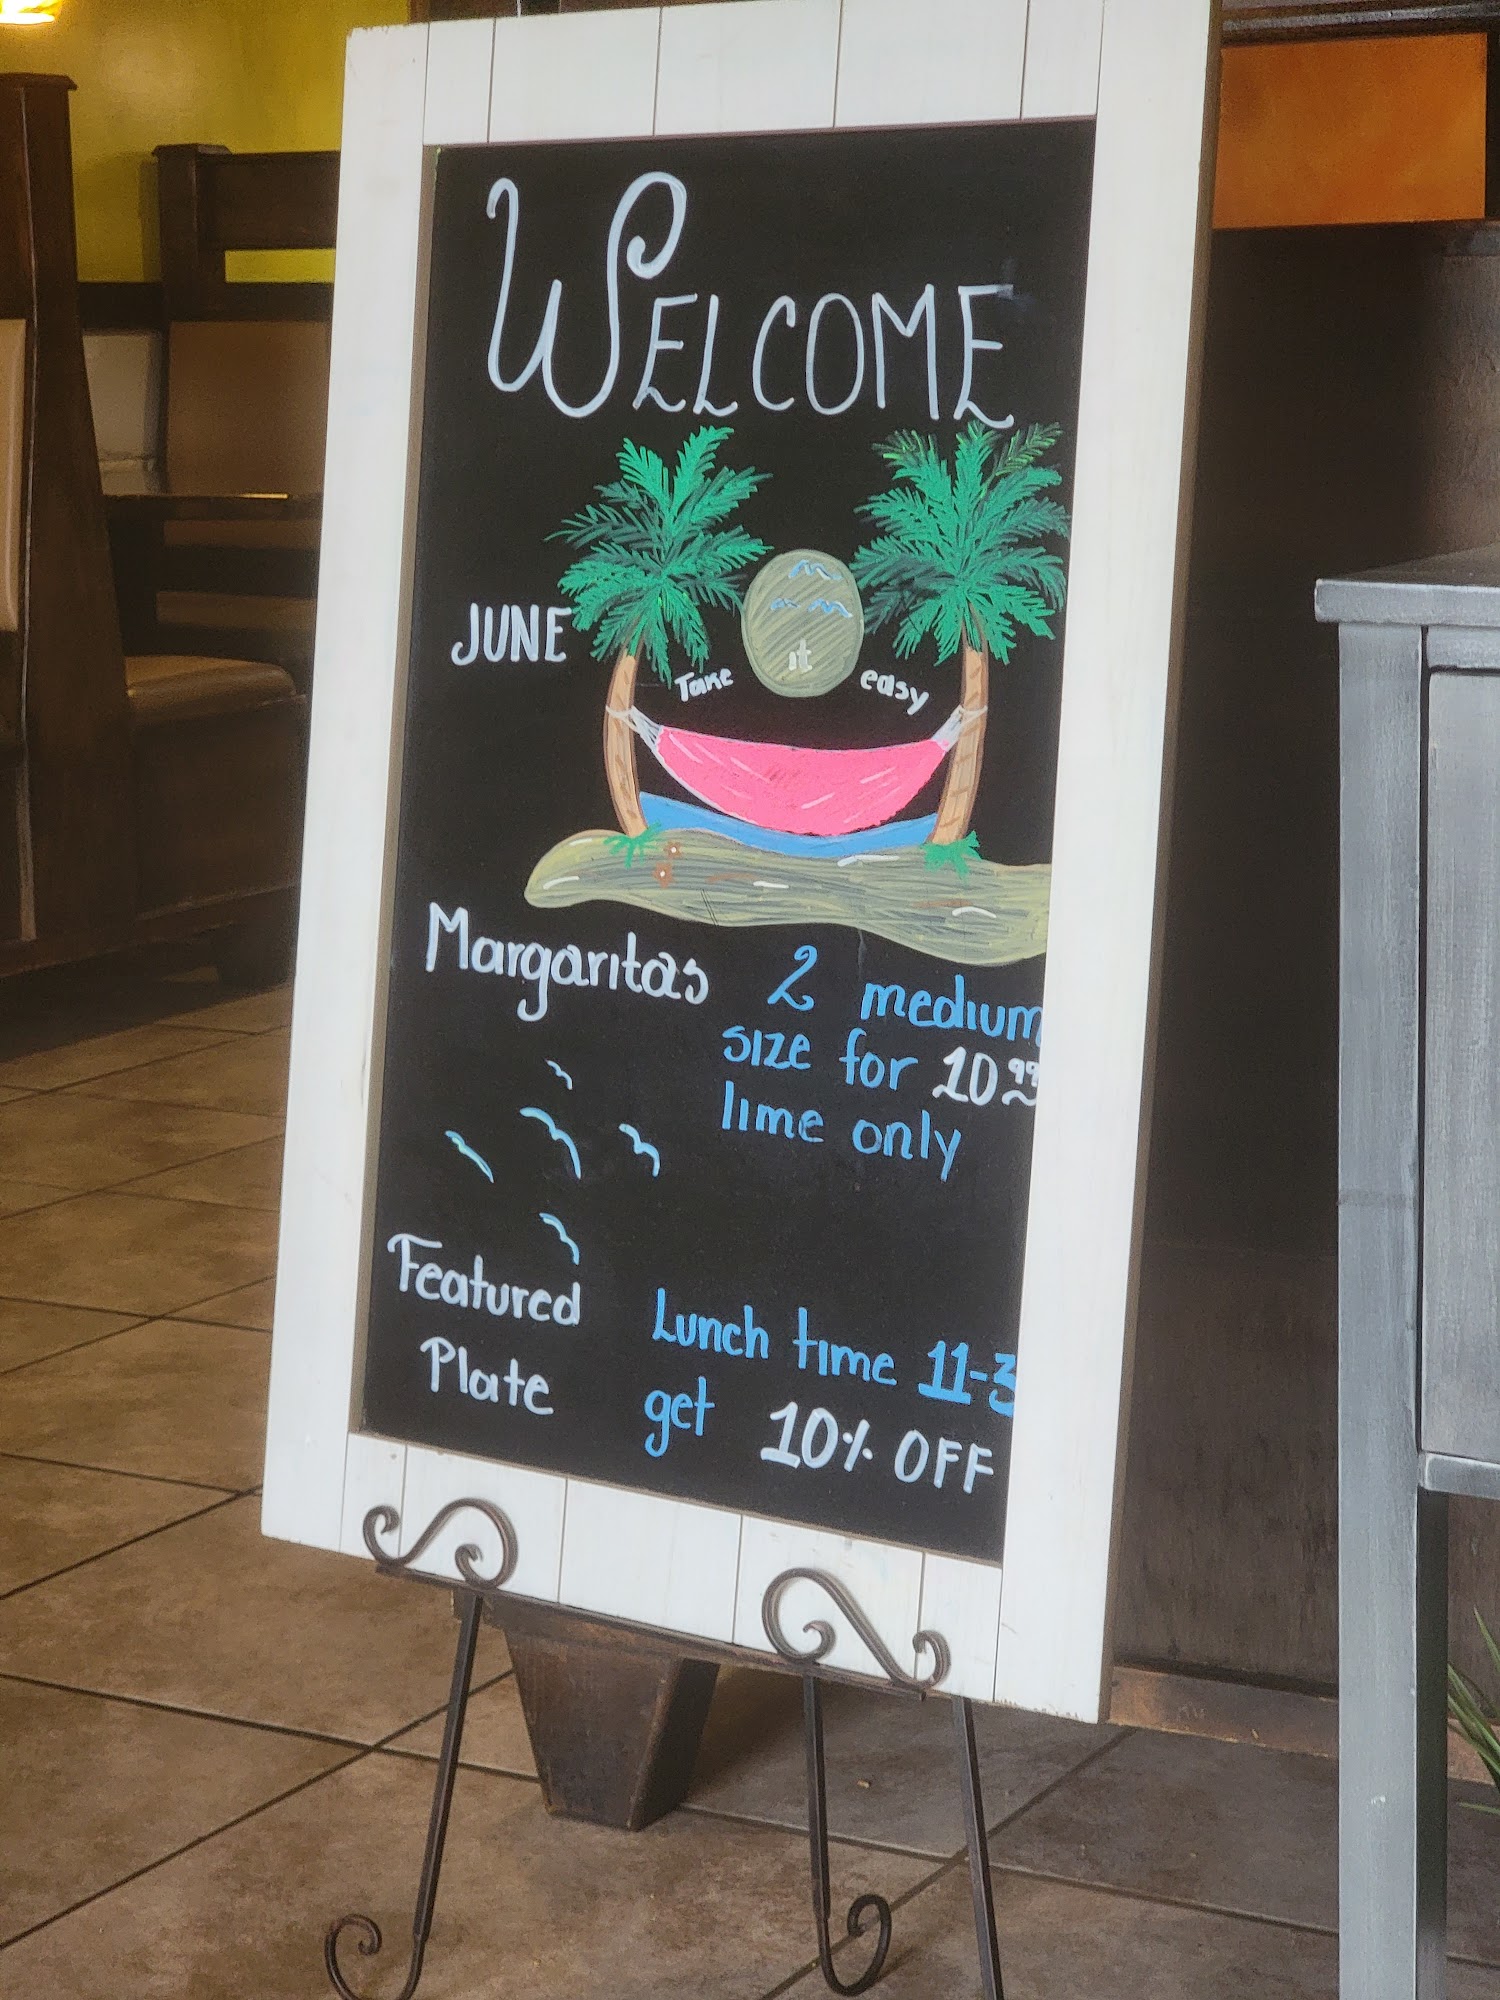 WELCOME
JUNE
Take it easy
Margaritas
2 medium
size for 10.99
lime only
Featured
Plate
Lunch time 11-3
get 10% OFF